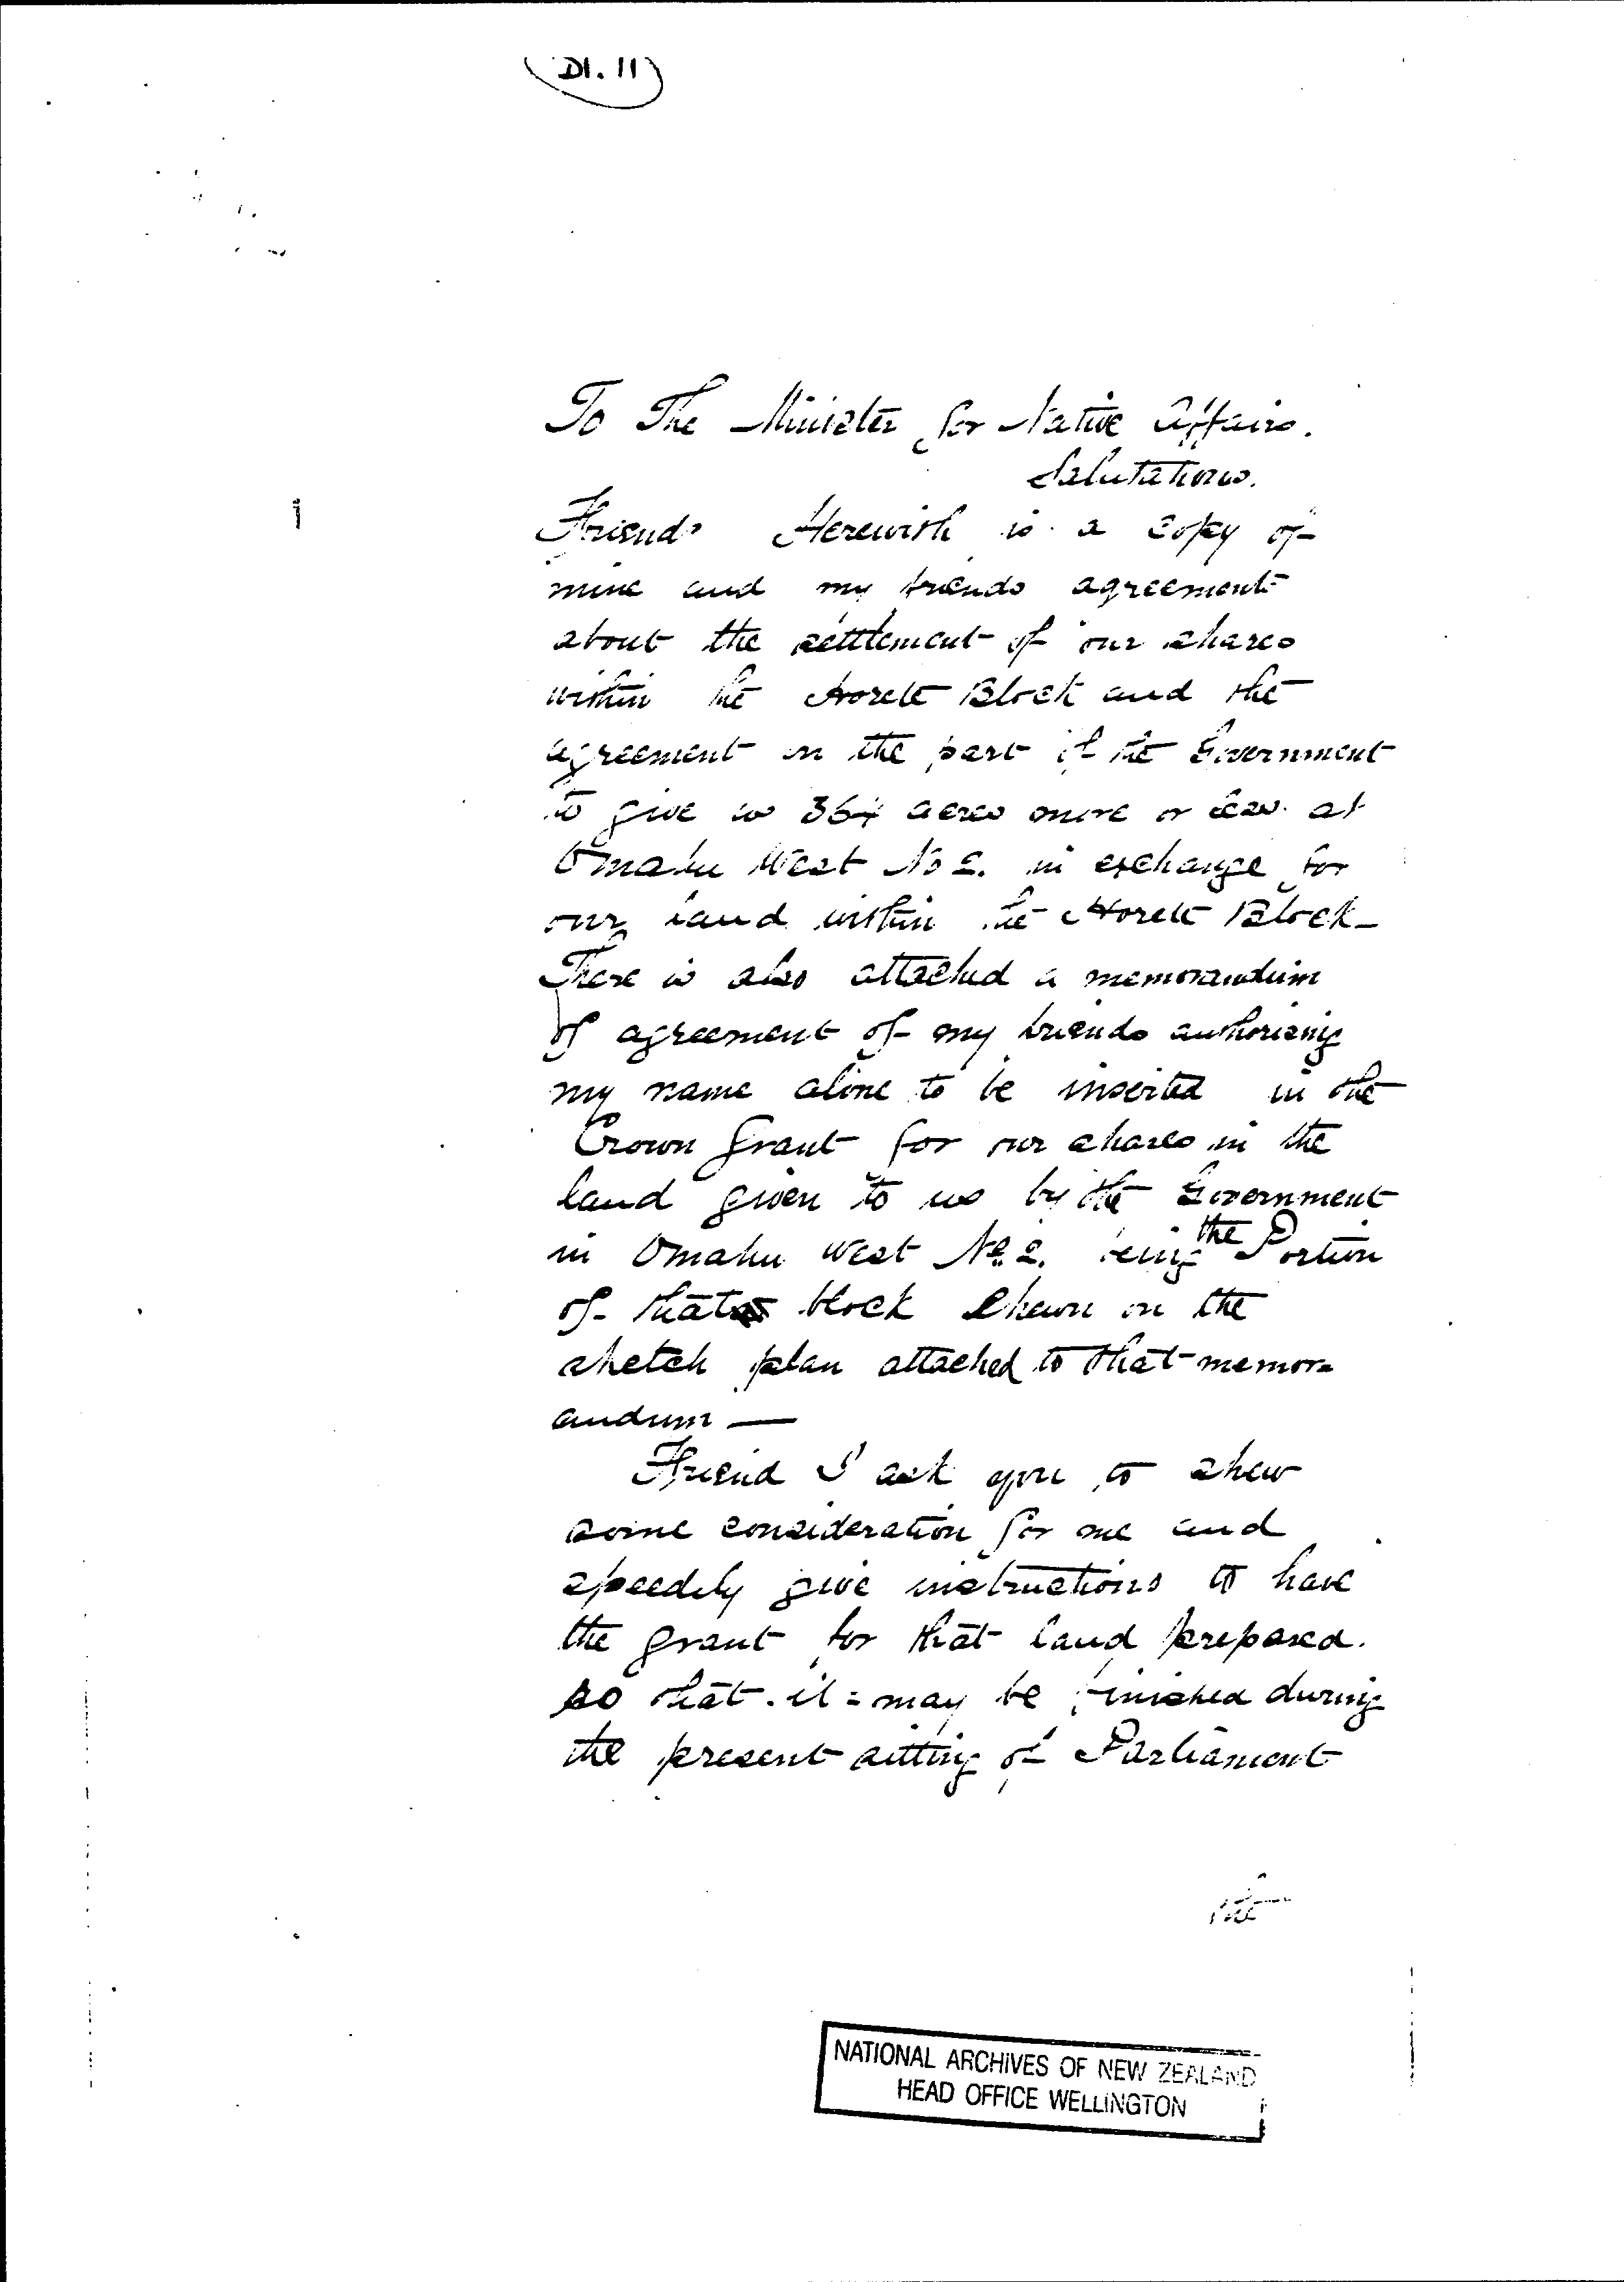 D1.11
To The Minister for Native Affairs.
Salutations.
Friend Herewith is a copy of
mine and my friends agreement
about the settlement of our shares
within the Block and the
agreement on the part of the Government
to give us 364 acres more or less at
Omahu West No 2. in exchange for
our land within the Block
There is also attached a memorandum
of agreement of my friends authorizing
my name alone to be inserted in the
Crown Grant for our shares in the
land given to us by the Government
in Omahu West No. 2. being the Portion
of that block shewn on the
sketch plan attached to that memor=
andum —
Friend I ask you to shew
some consideration for me and
speedily give instructions to have
the grant for that land prepared.
so that it may be finished during
the present sitting of Parliament
the
NATIONAL ARCHIVES OF NEW ZEALAND
HEAD OFFICE WELLINGTON